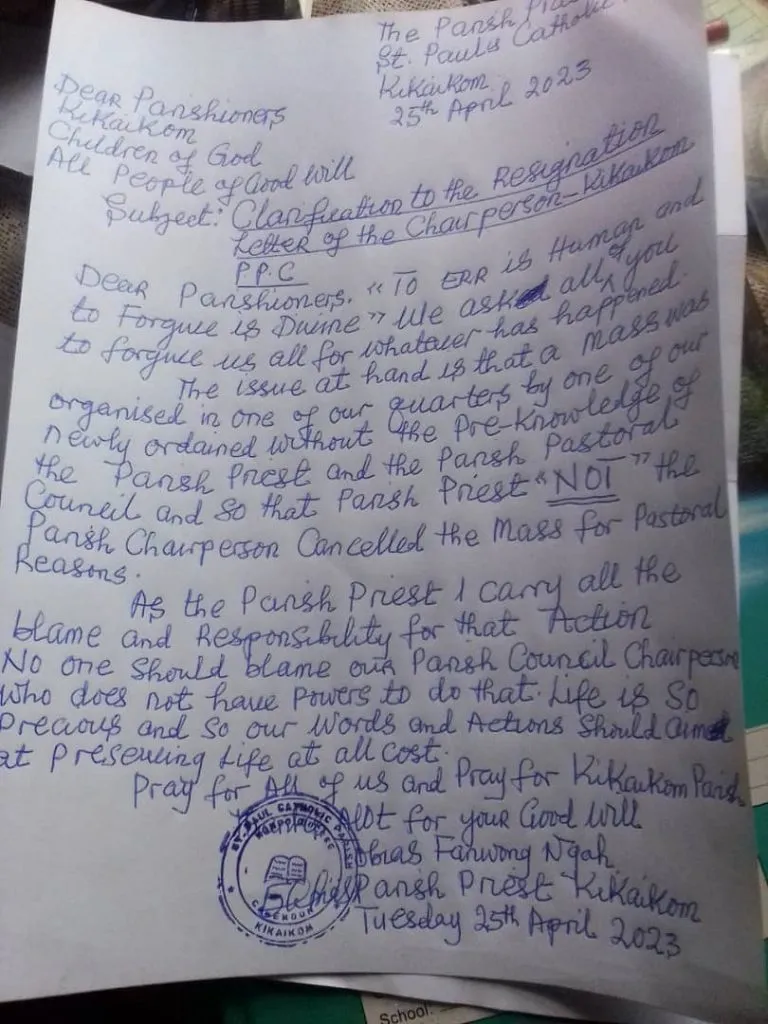 The Parish
St. Paul's Catholic
Kikaikom
25th April 2023
Dear Parishioners
Kikaikom
Children of God
All People of Good Will
Subject: Clarification to the Resignation
Letter of the Chairperson-Kikaikom
P.P.C
Dear Parishioners. "To ERR is Human and
to Forgive is Divine" We ask all of you
to forgive us all for whatever has happened.
The issue at hand is that a Mass was
organised in one of our quarters by one of our
newly ordained without the Pre-Knowledge of
the Parish Priest and the Parish Pastoral
Council and so that Parish Priest "NOT" the
Parish Chairperson Cancelled the Mass for Pastoral
Reasons.
As the Parish Priest I carry all the
blame and Responsibility for that Action
No one should blame our Parish Council Chairperson
who does not have powers to do that. Life is so
Precious and so our words and Actions should aim
at Preserving Life at all cost.
Pray for All of us and Pray for Kikaikom Parish
alot for your Good Will
Tobias Fanwong Ngah
Parish Priest Kikaikom
Tuesday 25th April 2023
ST. PAUL CATHOLIC PARISH
KIKAIKOM
School: